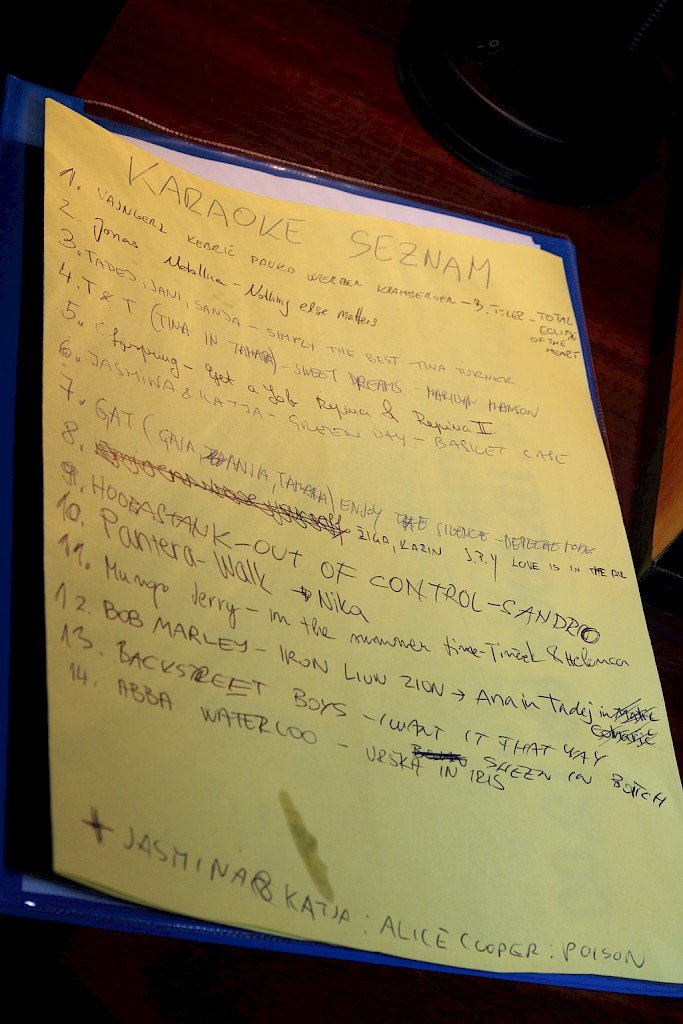 KARAOKE SEZNAM
1. VAJNGERL KEBRIČ PAUKO WERBER KRAMBERGER - B. TYLER - TOTAL
ECLIPSE
OF THE
HEART
2. Jonas Metallica - Nothing else matters
3. TADEJ, JANI, SANJA - SIMPLY THE BEST TINA TURNER
4. T & T (TINA IN TAMARA) - SWEET DREAMS - MARILYN MANSON
5. Offspring - Get a Job Repina & Repina II
6. JASMINA & KATJA - GREEN DAY - BASKET CASE
7. GAT (GAJA, ANJA, TAMARA) ENJOY THE SILENCE - DEPECHE MODE
8. ŽIGA, KARIN J.P.Y LOVE IS IN THE AIR
9. HOOBASTANK - OUT OF CONTROL - SANDRO
10. Pantera - Walk → Nika
11. Mungo Jerry - in the summer time - Tinček & Helenca
12. BOB MARLEY - IRON LIUN ZION → Ana in Tadej in
13. BACKSTREET BOYS - I WANT IT THAT WAY
SHEEN IN BOTTCH
14. ABBA WATERLOO - URŠKA IN IRIS
+ JASMINA & KATJA : ALICE COOPER : POISON